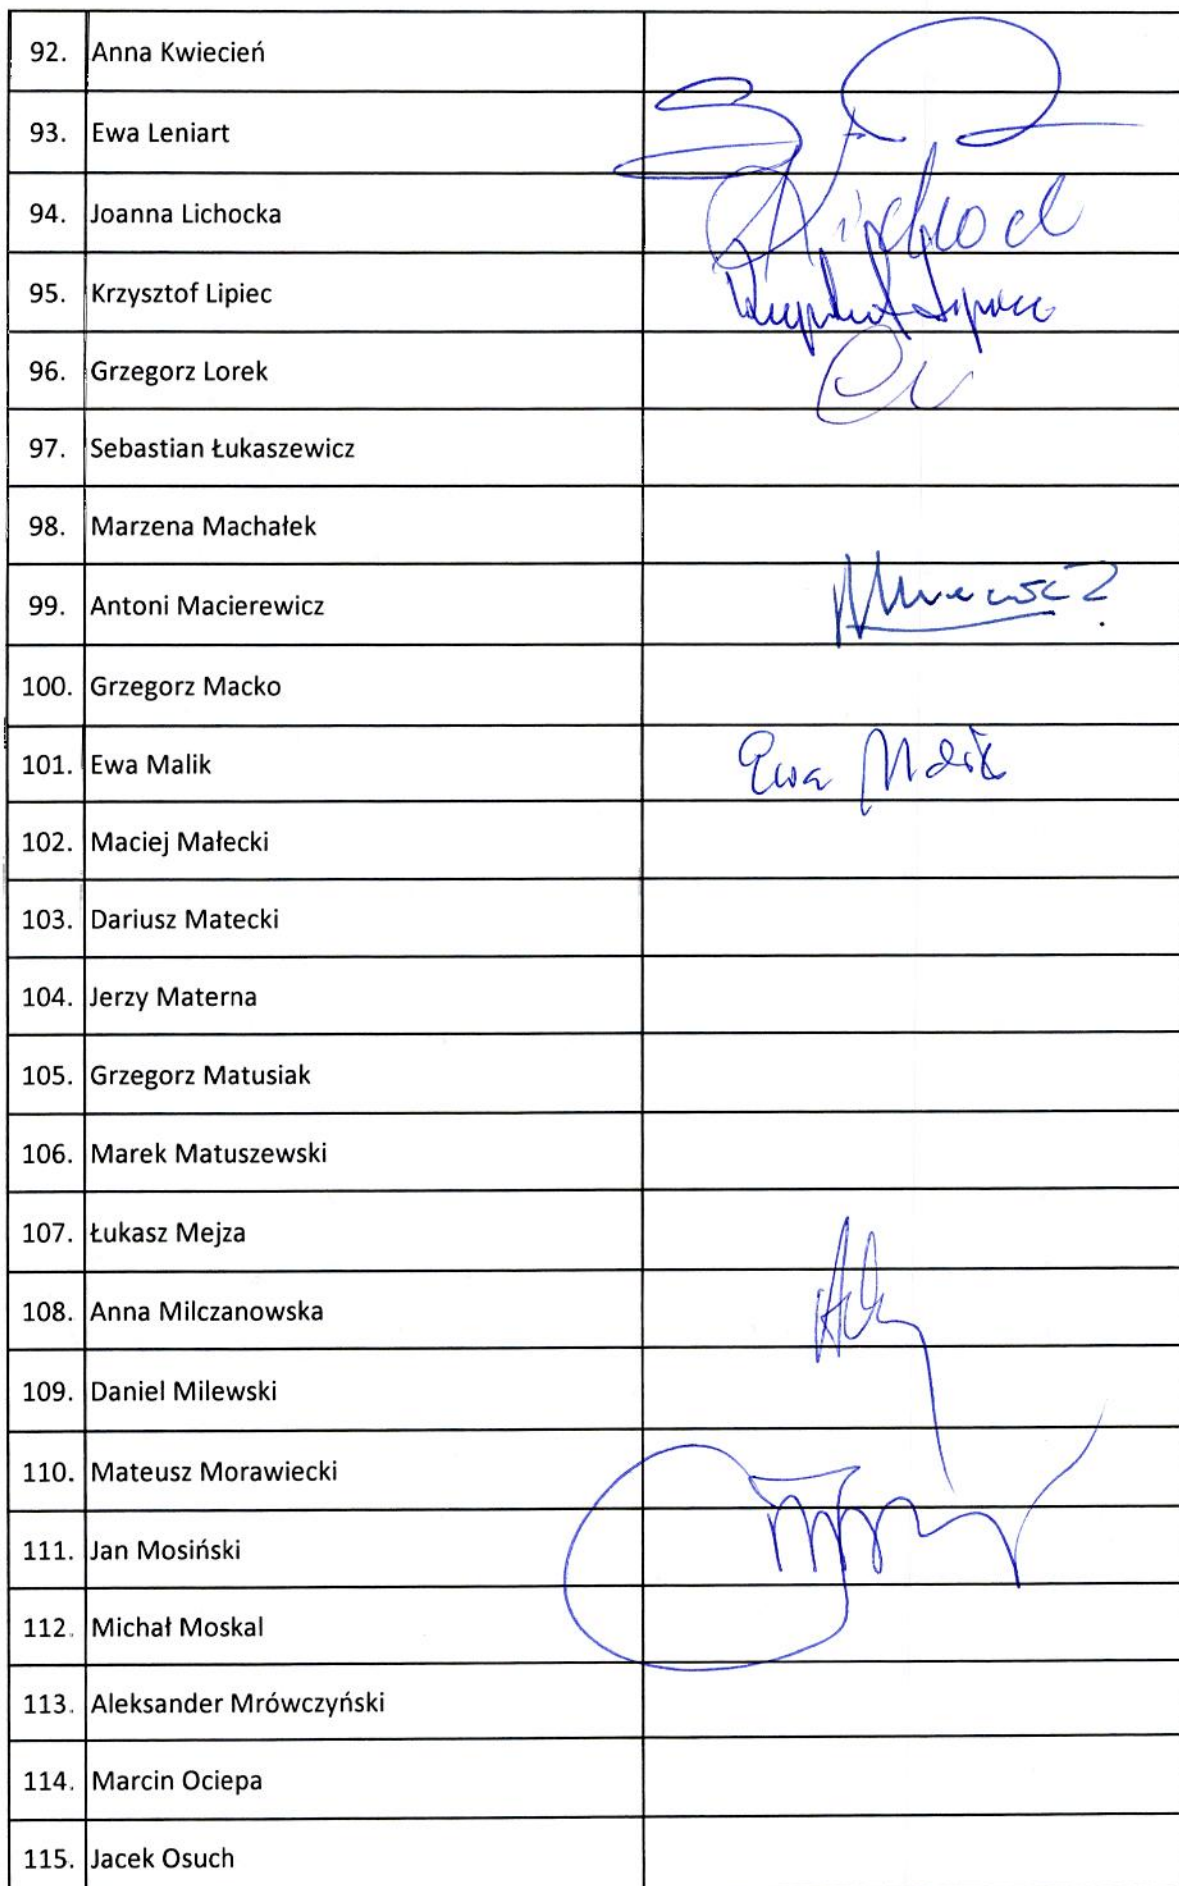 92. Anna Kwiecień
93. Ewa Leniart
94. Joanna Lichocka
95. Krzysztof Lipiec Krzysztof Lipiec
96. Grzegorz Lorek
97. Sebastian Łukaszewicz
98. Marzena Machałek
99. Antoni Macierewicz
100. Grzegorz Macko
101. Ewa Malik Ewa Malik
102. Maciej Małecki
103. Dariusz Matecki
104. Jerzy Materna
105. Grzegorz Matusiak
106. Marek Matuszewski
107. Łukasz Mejza
108. Anna Milczanowska
109. Daniel Milewski
110. Mateusz Morawiecki
111. Jan Mosiński
112. Michał Moskal
113. Aleksander Mrówczyński
114. Marcin Ociepa
115. Jacek Osuch